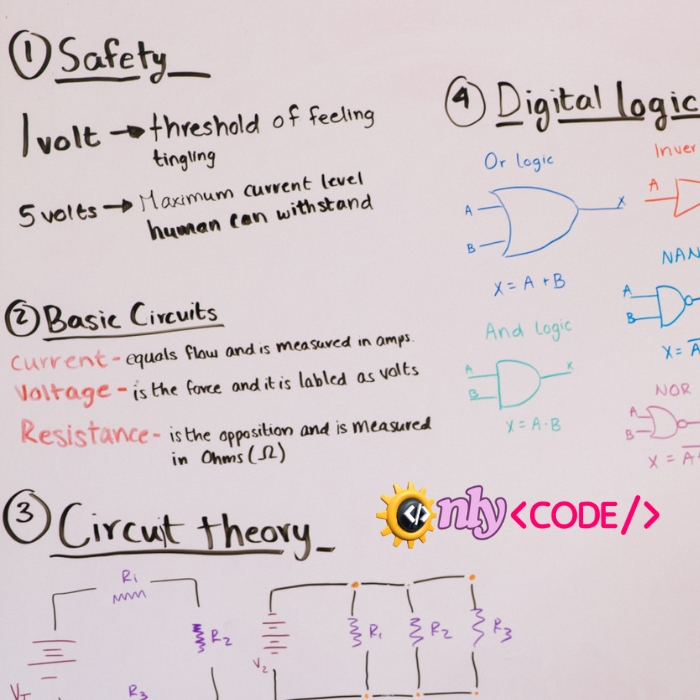 ① Safety
1 volt → threshold of feeling
tingling
5 volts → Maximum current level
human can withstand
② Basic Circuits
Current - equals flow and is measured in amps.
Voltage - is the force and it is labled as volts
Resistance - is the opposition and is measured
in Ohms (Ω)
③ Circuit theory
R1
R2
R3
VT
V2
R1
R2
R3
④ Digital logic
Or logic
A
B
X
X = A + B
And logic
A
B
X
X = A·B
Inver
A
NAN
A
B
X = A
NOR
A
B
X = A+
Only <CODE/>